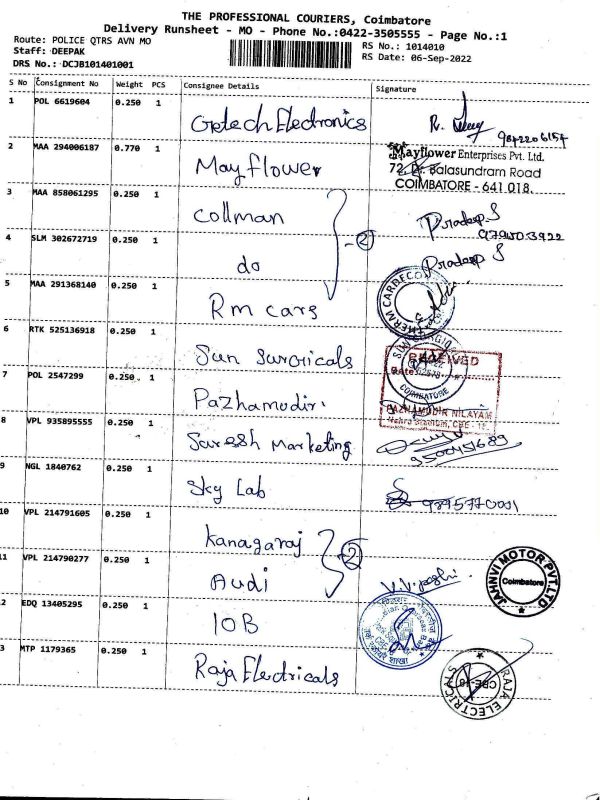 THE PROFESSIONAL COURIERS, Coimbatore
Delivery Runsheet - MO - Phone No.:0422-3505555 - Page No.:1
Route: POLICE QTRS AVN MO
RS No.: 1014010
Staff: DEEPAK
RS Date: 06-Sep-2022
DRS No.: DCJB101401001
S No Consignment No Weight PCS Consignee Details Signature
1 POL 6619604 0.250 1 Getech Electronics
2 MAA 294006187 0.770 1 Mayflower
Mayflower Enterprises Pvt. Ltd.
72, Dr. Balasundram Road
COIMBATORE - 641 018.
3 MAA 858061295 0.250 1 Collman Pradeep S
4 SLM 302672719 0.250 1 do 2 Pradeep S
5 MAA 291368140 0.250 1 Rm cars
6 RTK 525136918 0.250 1 Sun Surgicals
RECEIVED
Date
COIMBATORE
7 POL 2547299 0.250 1 Pazhamudir.
PAZHAMUDIR NILAYAM
Nehru Stadium, CBE - 18.
8 VPL 935895555 0.250 1 Suresh Marketing 9500451689
9 NGL 1840762 0.250 1 Sky Lab
10 VPL 214791605 0.250 1 Kanagaraj 2
11 VPL 214790277 0.250 1 Audi
JAHNVI MOTOR PVT. LTD
Coimbatore
2 EDQ 13405295 0.250 1 IOB
3 MTP 1179365 0.250 1 Raja Electricals
RAJA ELECTRICALS
CBE-18